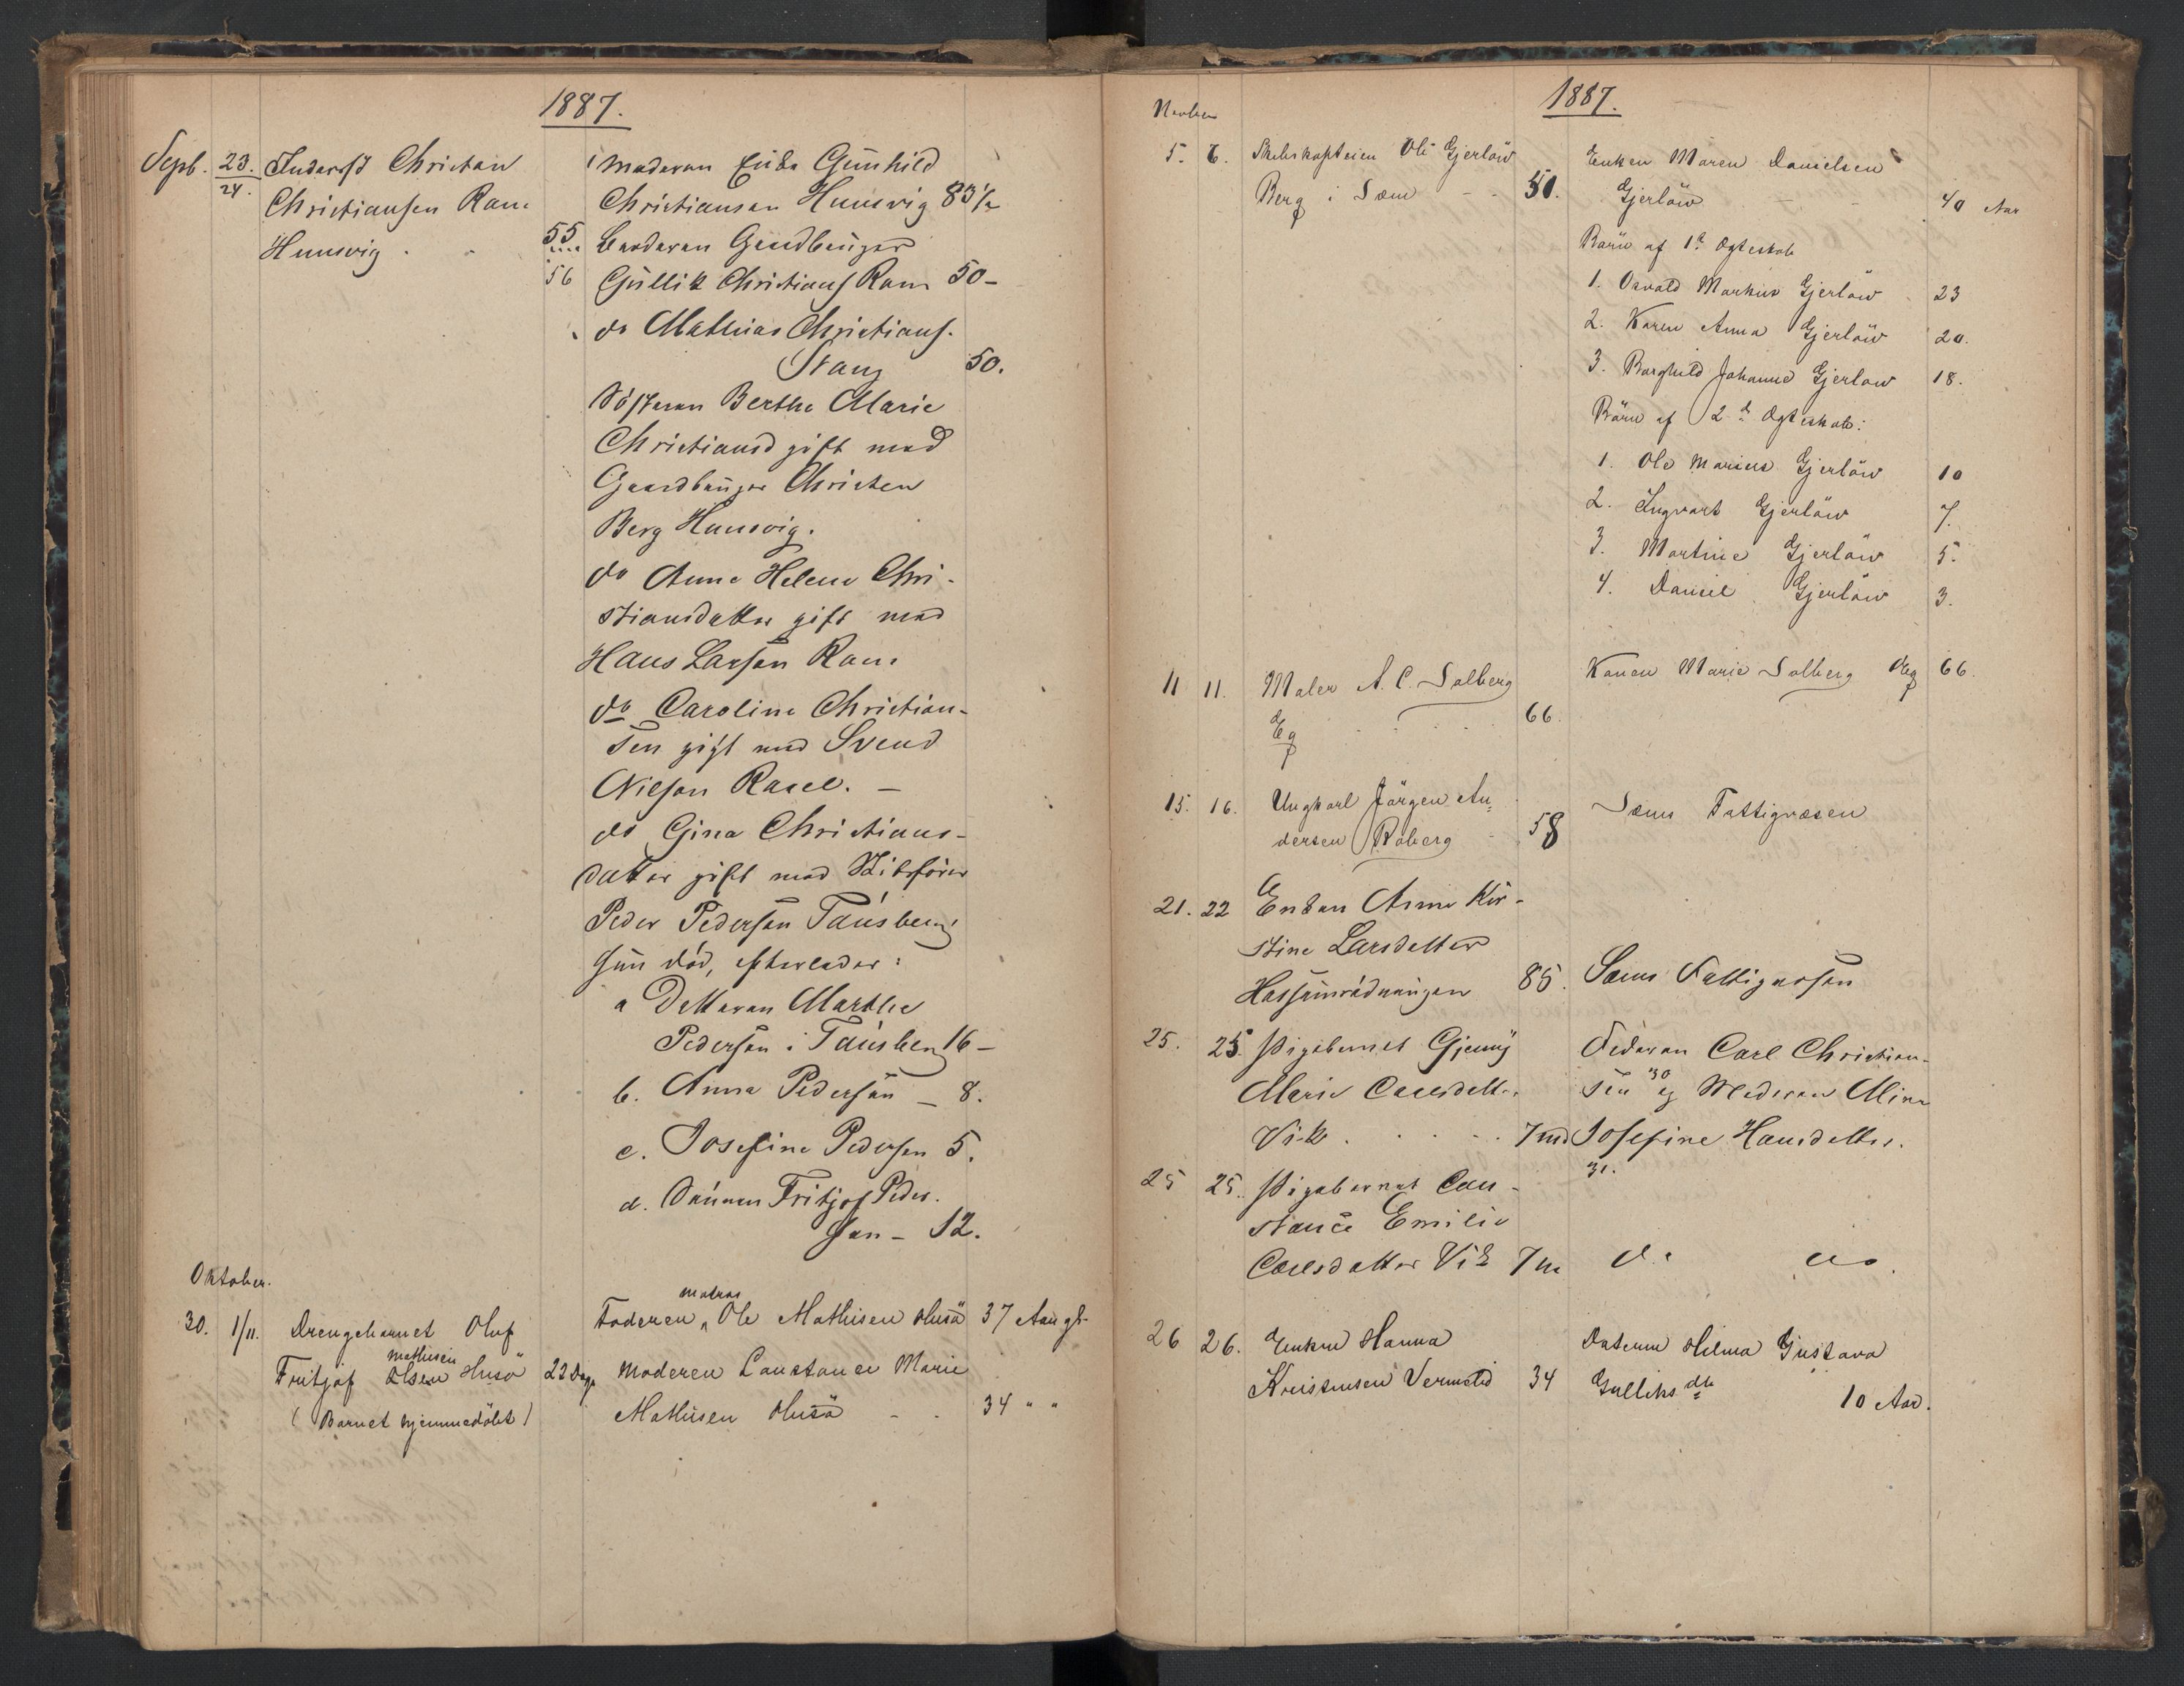 1887.
Sepb. 23. Inderst Christian
24. Christiansen Ram
Hunsvig 55
56
Moderen Enke Gunhild
Christiansen Hunsvig 83 1/2
Broderen Gaardbruger
Gullik Christians Ram 50 -
do Mathias Christians.
Stang 50.
Søsteren Berthe Marie
Christiansd gift med
Gaardbruger Christen
Berg Hunsvig.
do Anne Helene Chri-
stiansdatter gift med
Hans Larsen Ram
do Caroline Christian-
sen gift med Svend
Nilsen Rael. -
do Gina Christians-
datter gift med Skibsfører
Peder Pedersen Tønsberg
hun død, efterlader:
a Datteren Marthe
Pedersen i Tønsberg 16 -
b. Anna Pedersen - 8.
c. Josefine Pedersen 5.
d. Sønnen Fritjof Peder-
sen - 12.
Oktober.
30. 1/11. Drengebarnet Oluf
Fritjof Olsen Husö 22 Dage
Mathisen
( Barnet hjemmedøbt )
matros
Faderen Ole Mathisen Husö 37 Aar gl.
Moderen Constance Marie
Mathisen Husö - - 34 " "
1887.
Novber
5. 6. Skibskaptein Ole Gjerløw
Berg i Sem - - 51.
Enken Maren Danielsen
Gjerløw - - 40 Aar
Børn af 1ste Ægteskab
1. Osvald Markus Gjerløw 23
2. Karen Anna Gjerløw 20.
3. Borghild Johanne Gjerløw 18.
Børn af 2det Ægteskab:
1. Ole Marius Gjerløw 10
2. Ingvart Gjerløw 7.
3. Martine Gjerløw 5.
4. Daniel Gjerløw 3.
11 11. Maler A. C. Solberg
Eg 66.
Konen Marie Solberg Eg 66.
15. 16. Ungkarl Jörgen An-
dersen Roberg - 58
Sems Fattigvæsen
21. 22 Enken Anne Kir-
stine Larsdatter
85.
Sems Fattigvæsen
25. 25. Pigebarnet Gjenny
Marie Carlsdatter
Vik . . . . . 7 md
Faderen Carl Christian-
sen 30 og Moderen Mina
Josefine Hansdatter.
31.
25 25. Pigebarnet Con-
stance Emilie
Carlsdatter Vik 7 m
do do.
26 26. Enken Hanna
Kristensen Vermelid 34
Datteren Hilma Gustava
Gulliksdtr 10 Aar.